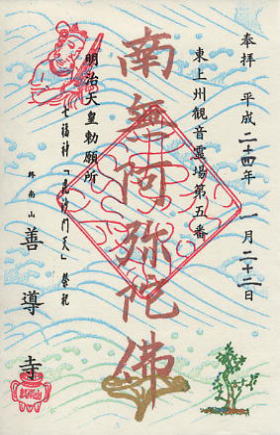 奉拝 平成二十四年 一月二十二日
東上州観音霊場第五番
南無阿弥陀佛
明治天皇勅願所
七福神「毘沙門天」祭祀
終南山
善導寺